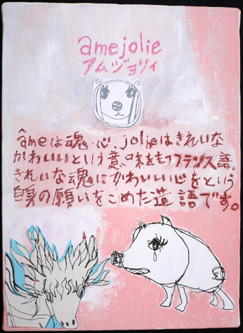 amejolie
アムジョリイ
âmeは魂・心、jolieはきれいな
かわいいという意味をもつフランス語。
きれいな魂にかわいい心をという
自身の願いをこめた造語です。